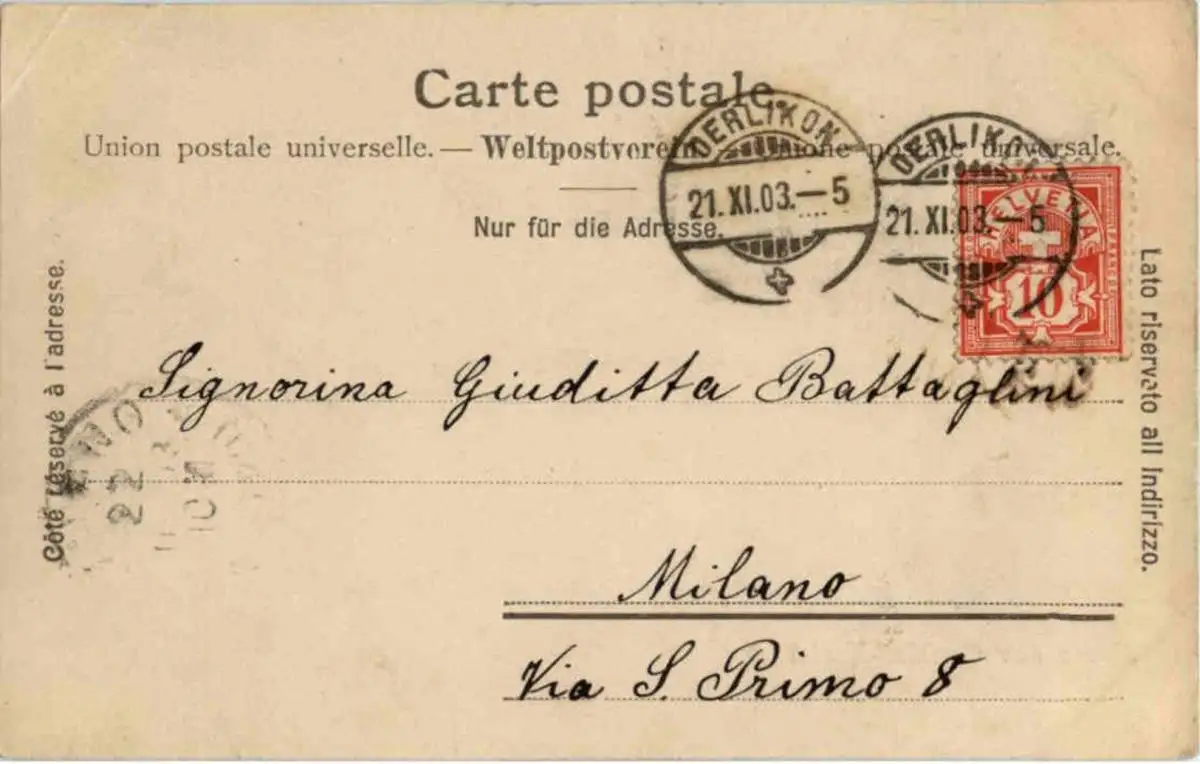 Carte postale.
Union postale universelle. — Weltpostverein. — Unione postale universale.
Nur für die Adresse.
OERLIKON
21.XI.03.—5
OERLIKON
21.XI.03.—5
HELVETIA
10
Côté réservé à l'adresse.
Lato riservato all Indirizzo.
Signorina Giuditta Battaglini
22
Milano
Via S. Primo 8